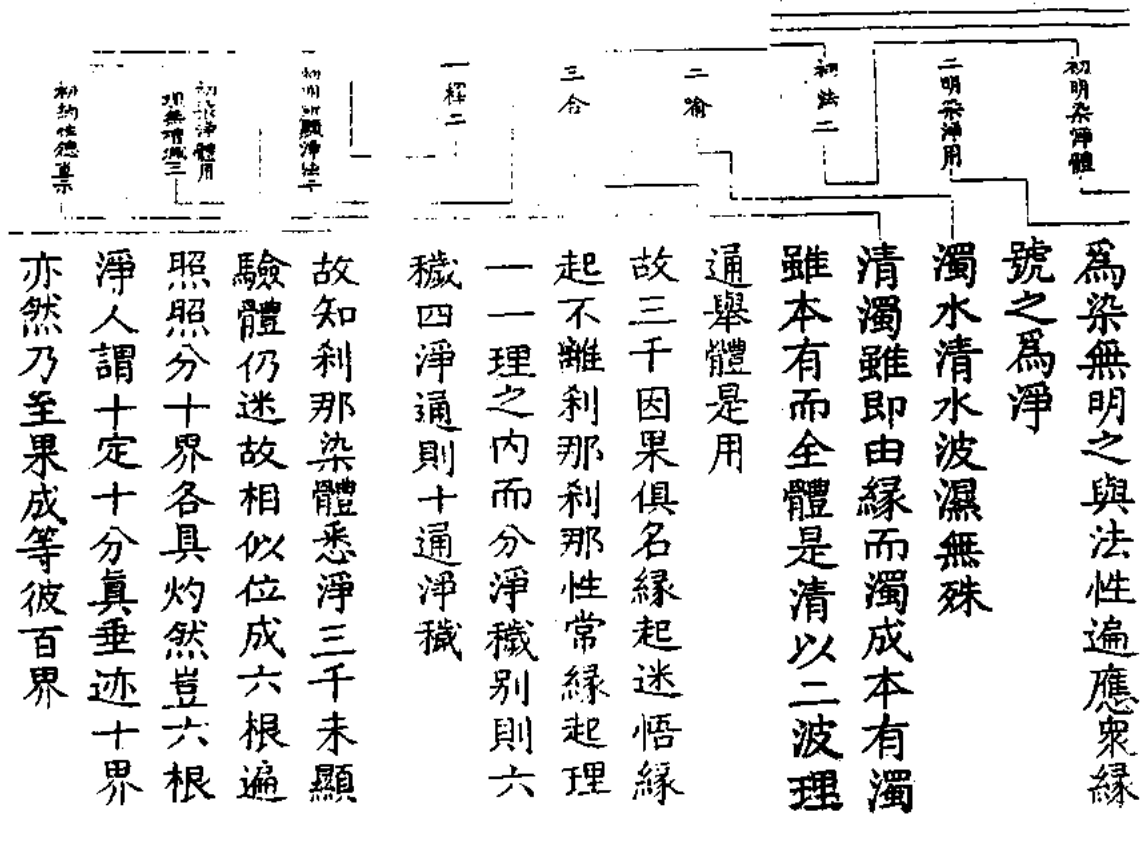 初明染淨體
二明染淨用
初法二
二喻
三合
二釋二
初明所顯淨法二
初染淨體用
現無增減三
初約性德直示
爲染無明之與法性遍應衆緣
號之爲淨
濁水清水波濕無殊
清濁雖即由緣而濁成本有濁
雖本有而全體是清以二波理
通舉體是用
故三千因果俱名緣起迷悟緣
起不離刹那刹那性常緣起理
一一理之內而分淨穢别則六
穢四淨通則十通淨穢
故知刹那染體悉淨三千未顯
驗體仍迷故相似位成六根遍
照照分十界各具灼然豈六根
淨人謂十定十分眞垂迹十界
亦然乃至果成等彼百界